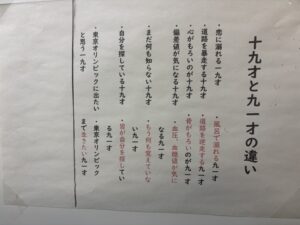 十九才と九一才の違い
・恋に溺れる一九才
・風呂で溺れる九一才
・道路を暴走する十九才
・道路を逆走する九一才
・心がもろいのが十九才
・骨がもろいのが九一才
・偏差値が気になる十九才
・血圧、血糖値が気に
なる九一才
・まだ何も知らない十九才
・もう何も覚えていな
い九一才
・自分を探している十九才
・皆が自分を探してい
る九一才
・東京オリンピックに出たい
と思う一九才
・東京オリンピック
まで生きたい九一才